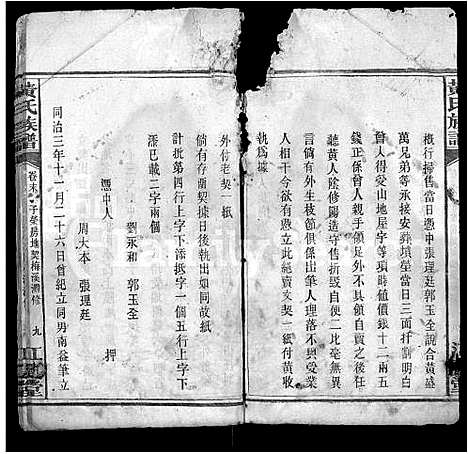 黃氏族譜
概行掃售當日憑中張理廷郭玉全說合黃盛
萬兄弟等承接安葬墳塋當日三面言定
曾人得受山地屋宇等項時值價銀十二兩五
錢正係曾人親手領足外不具領其山自賣之後
聽黃人陰修陽造守售折毀自便二比毫無異
言倘有外生枝節俱係出筆人理落不與受業
人相干今欲有憑立此絕賣文契一紙付黃收
執爲據
外付老契一紙
倘有存留契據日後執出如同故紙
計批第四行上字下添抵字一個五行上字下
添已載二字兩個
憑中人 劉永和 郭玉全
周大本 張理廷 押
同治三年十一月二十六日曾紀立同男南益筆立
黃氏族譜
卷末
子榮房地契梅溪濃修
九